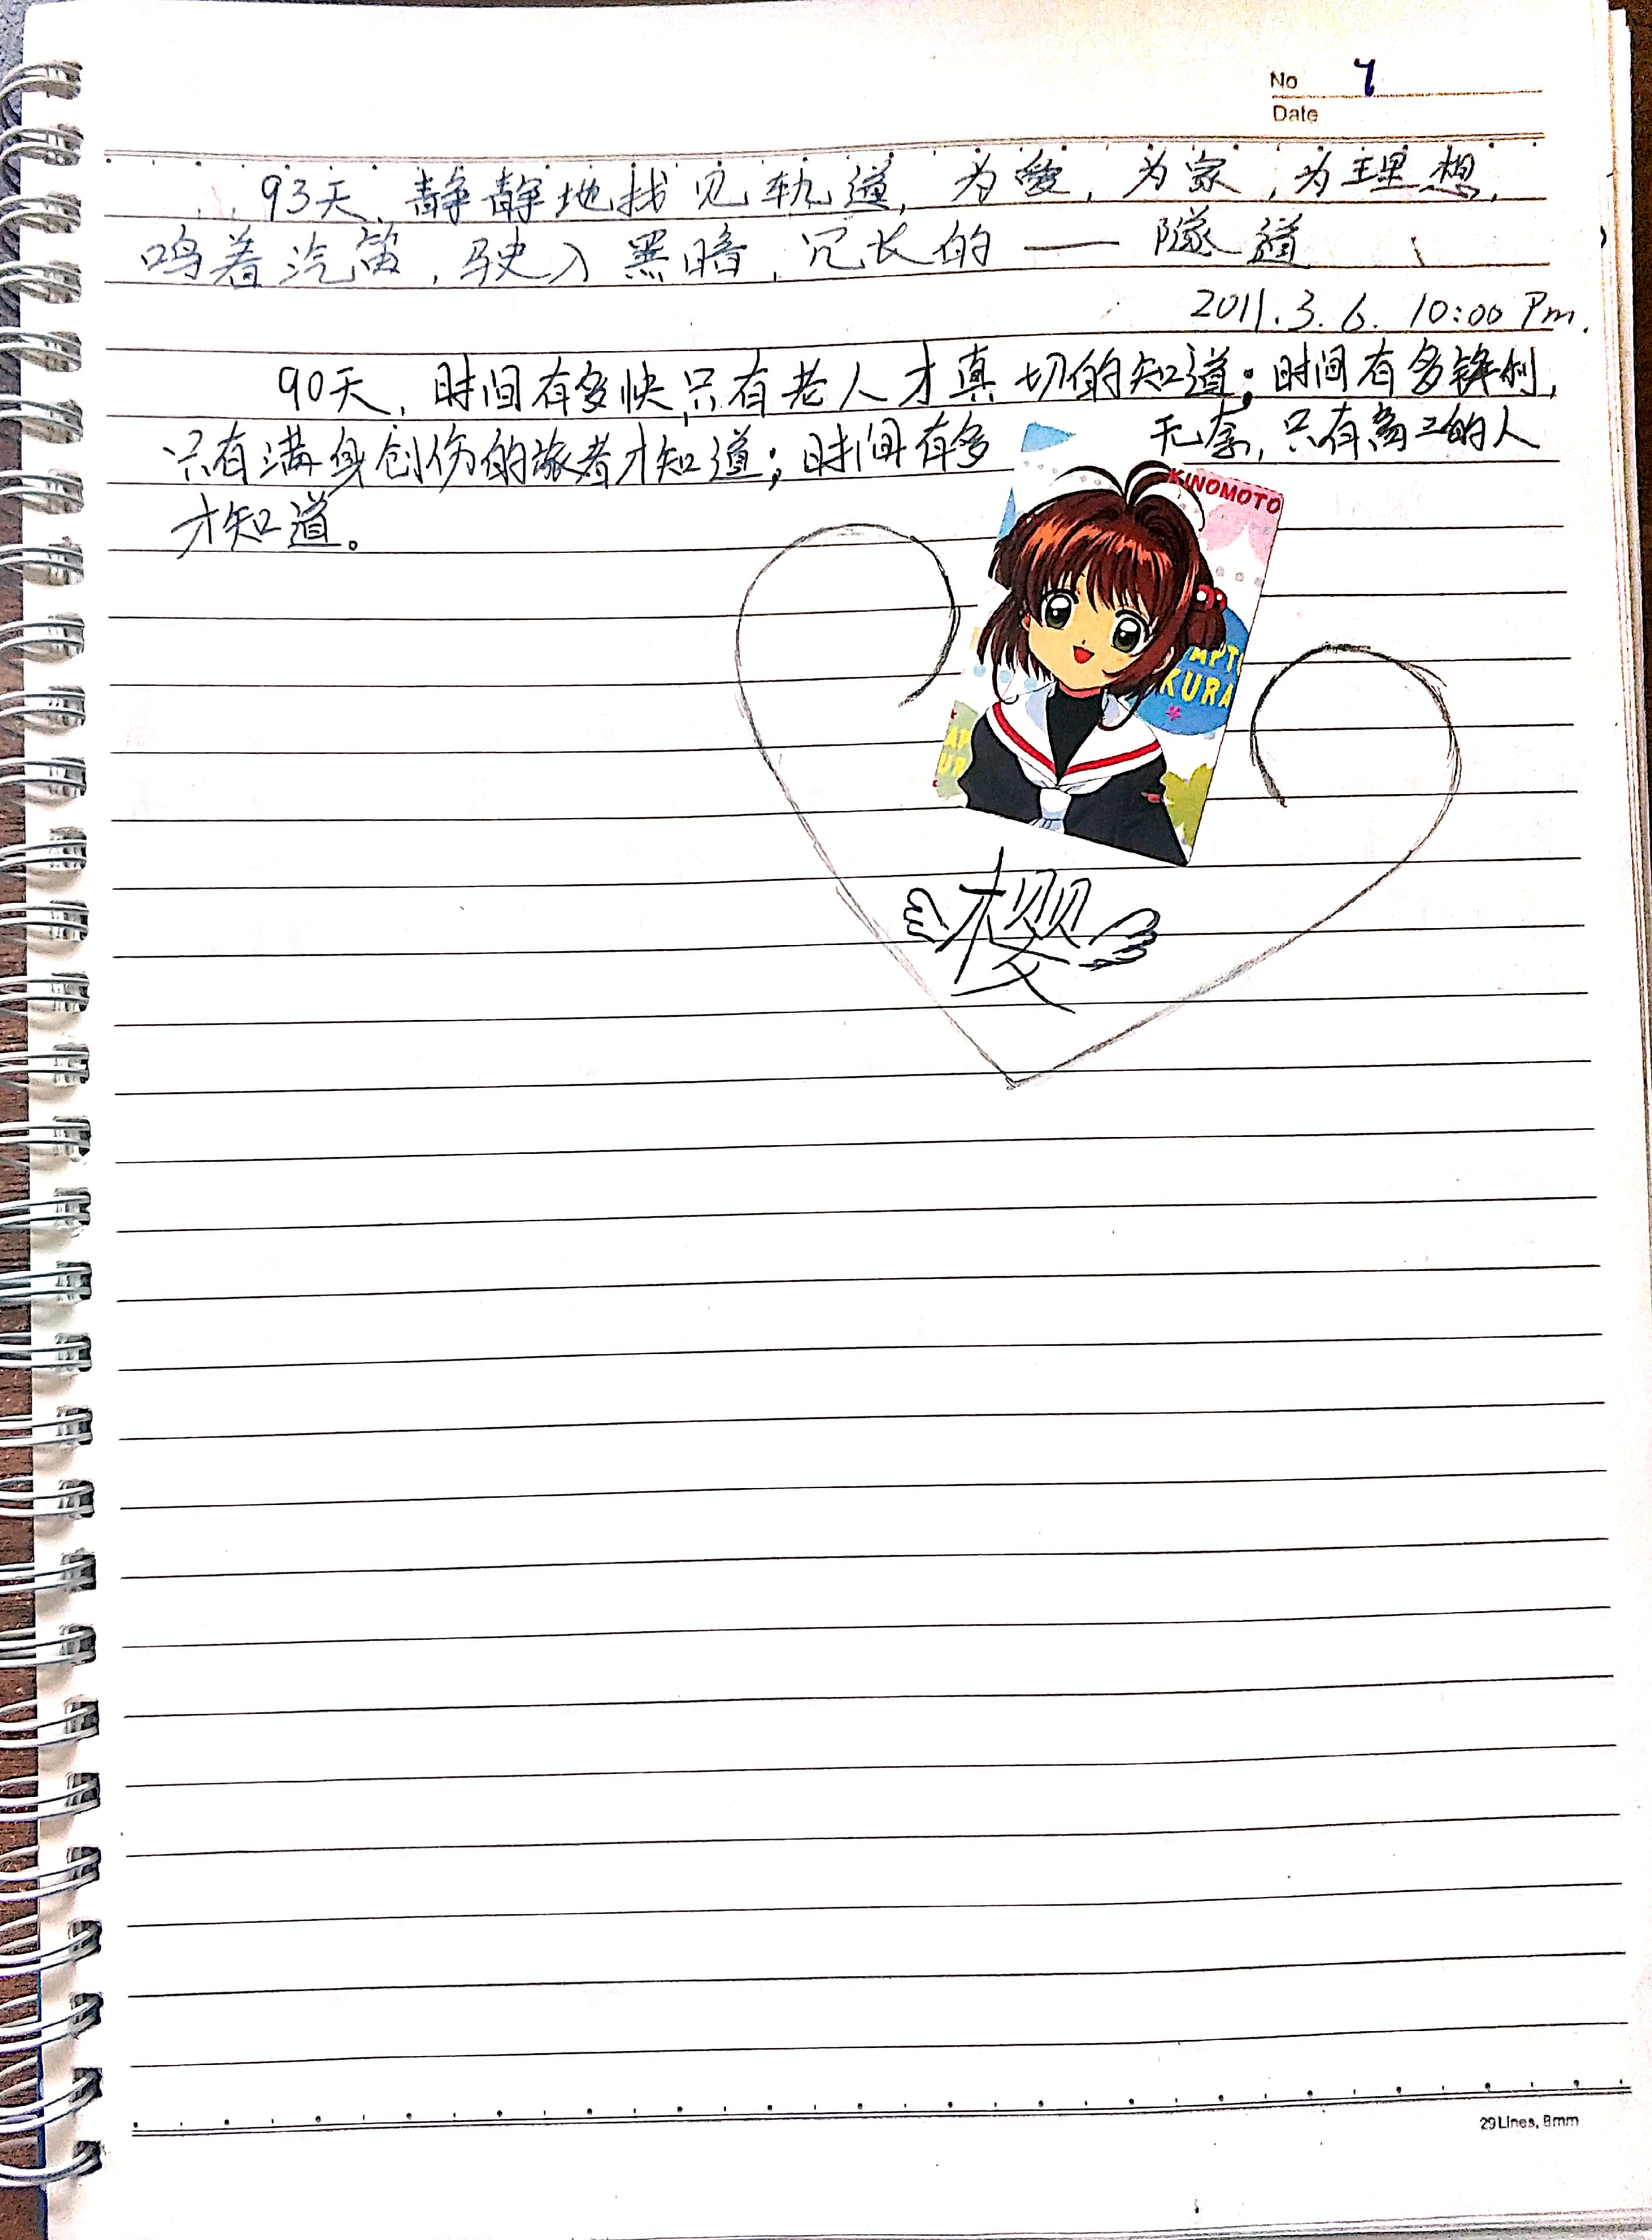 No 7
Date
93天，静静地找见轨道，为爱，为家，为理想，
鸣着汽笛，驶入黑暗，冗长的——隧道
2011.3.6. 10:00 Pm.
90天，时间有多快，只有老人才真切的知道；时间有多锋利，
只有满身创伤的旅者才知道；时间有多 无奈，只有离工的人
才知道。
KINOMOTO
APT
KURA
AP
UR
樱
29Lines, 8mm